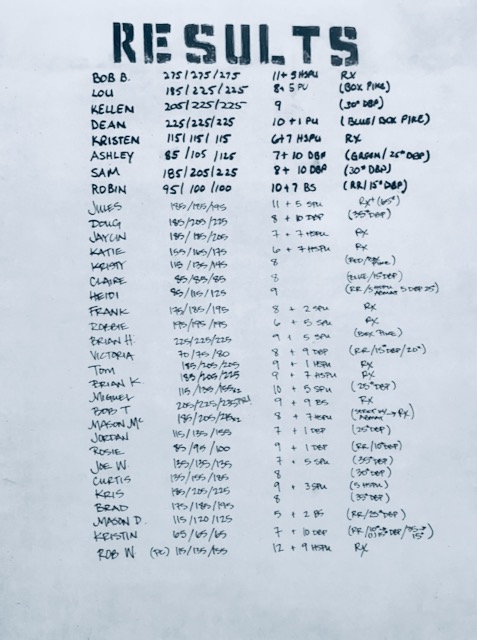 RESULTS
BOB B. 275/275/275 11+9 HSPU RX
LOU 185/225/225 8+5 PU (BOX PIKE)
KELLEN 205/225/225 9 (30# DBP)
DEAN 225/225/225 10+1 PU (BLUE/BOX PIKE)
KRISTEN 115/115/115 6+7 HSPU RX
ASHLEY 85/105/125 7+10 DBP (GREEN/25# DBP)
SAM 185/205/225 8+10 DBP (30# DBP)
ROBIN 95/100/100 10+7 BS (RR/15# DBP)
JULES 185/185/195 11 + 5 SPU
DOUG 185/205/225 8 + 10 DBP (35# DBP)
JAYLIN 185/185/205 7 + 7 HSPU RX
KATIE 155/165/175 6 + 7 HSPU RX
KRISTY 115/135/145 8
CLAIRE 85/85/85 8 (BLUE/15# DBP)
HEIDI 85/115/125 9
FRANK 175/185/195 8 + 2 SPU RX
ROBBIE 195/195/195 6 + 5 SPU RX
BRIAN H. 225/225/225 9 + 5 SPU (BOX PIKE)
VICTORIA 70/75/80 8 + 9 DBP (RR/15# DBP/20#)
TOM 185/205/205 9 + 1 HSPU RX
BRIAN K. 185/205/225 9 + 7 HSPU RX
MIGUEL 115/135/155x2 10 + 5 SPU (25# DBP)
BOB T 205/225/235 9 + 9 BS RX
MASON MC 185/205/215x2 8 + 7 HSPU
JORDAN 115/135/155 7 + 1 DBP (25# DBP)
ROSIE 85/95/100 9 + 1 DBP (RR/10# DBP)
JOE W. 135/135/135 7 + 5 SPU (35# DBP)
CURTIS 135/155/185 8 (30# DBP)
KRIS 185/205/225 9 + 3 SPU (5 HSPU)
BRAD 175/185/195 8 (35# DBP)
MASON D. 115/120/125 5 + 2 BS (RR/25# DBP)
KRISTIN 65/65/65 7 + 10 DBP
ROB W. (PC) 115/135/155 12 + 9 HSPU RX